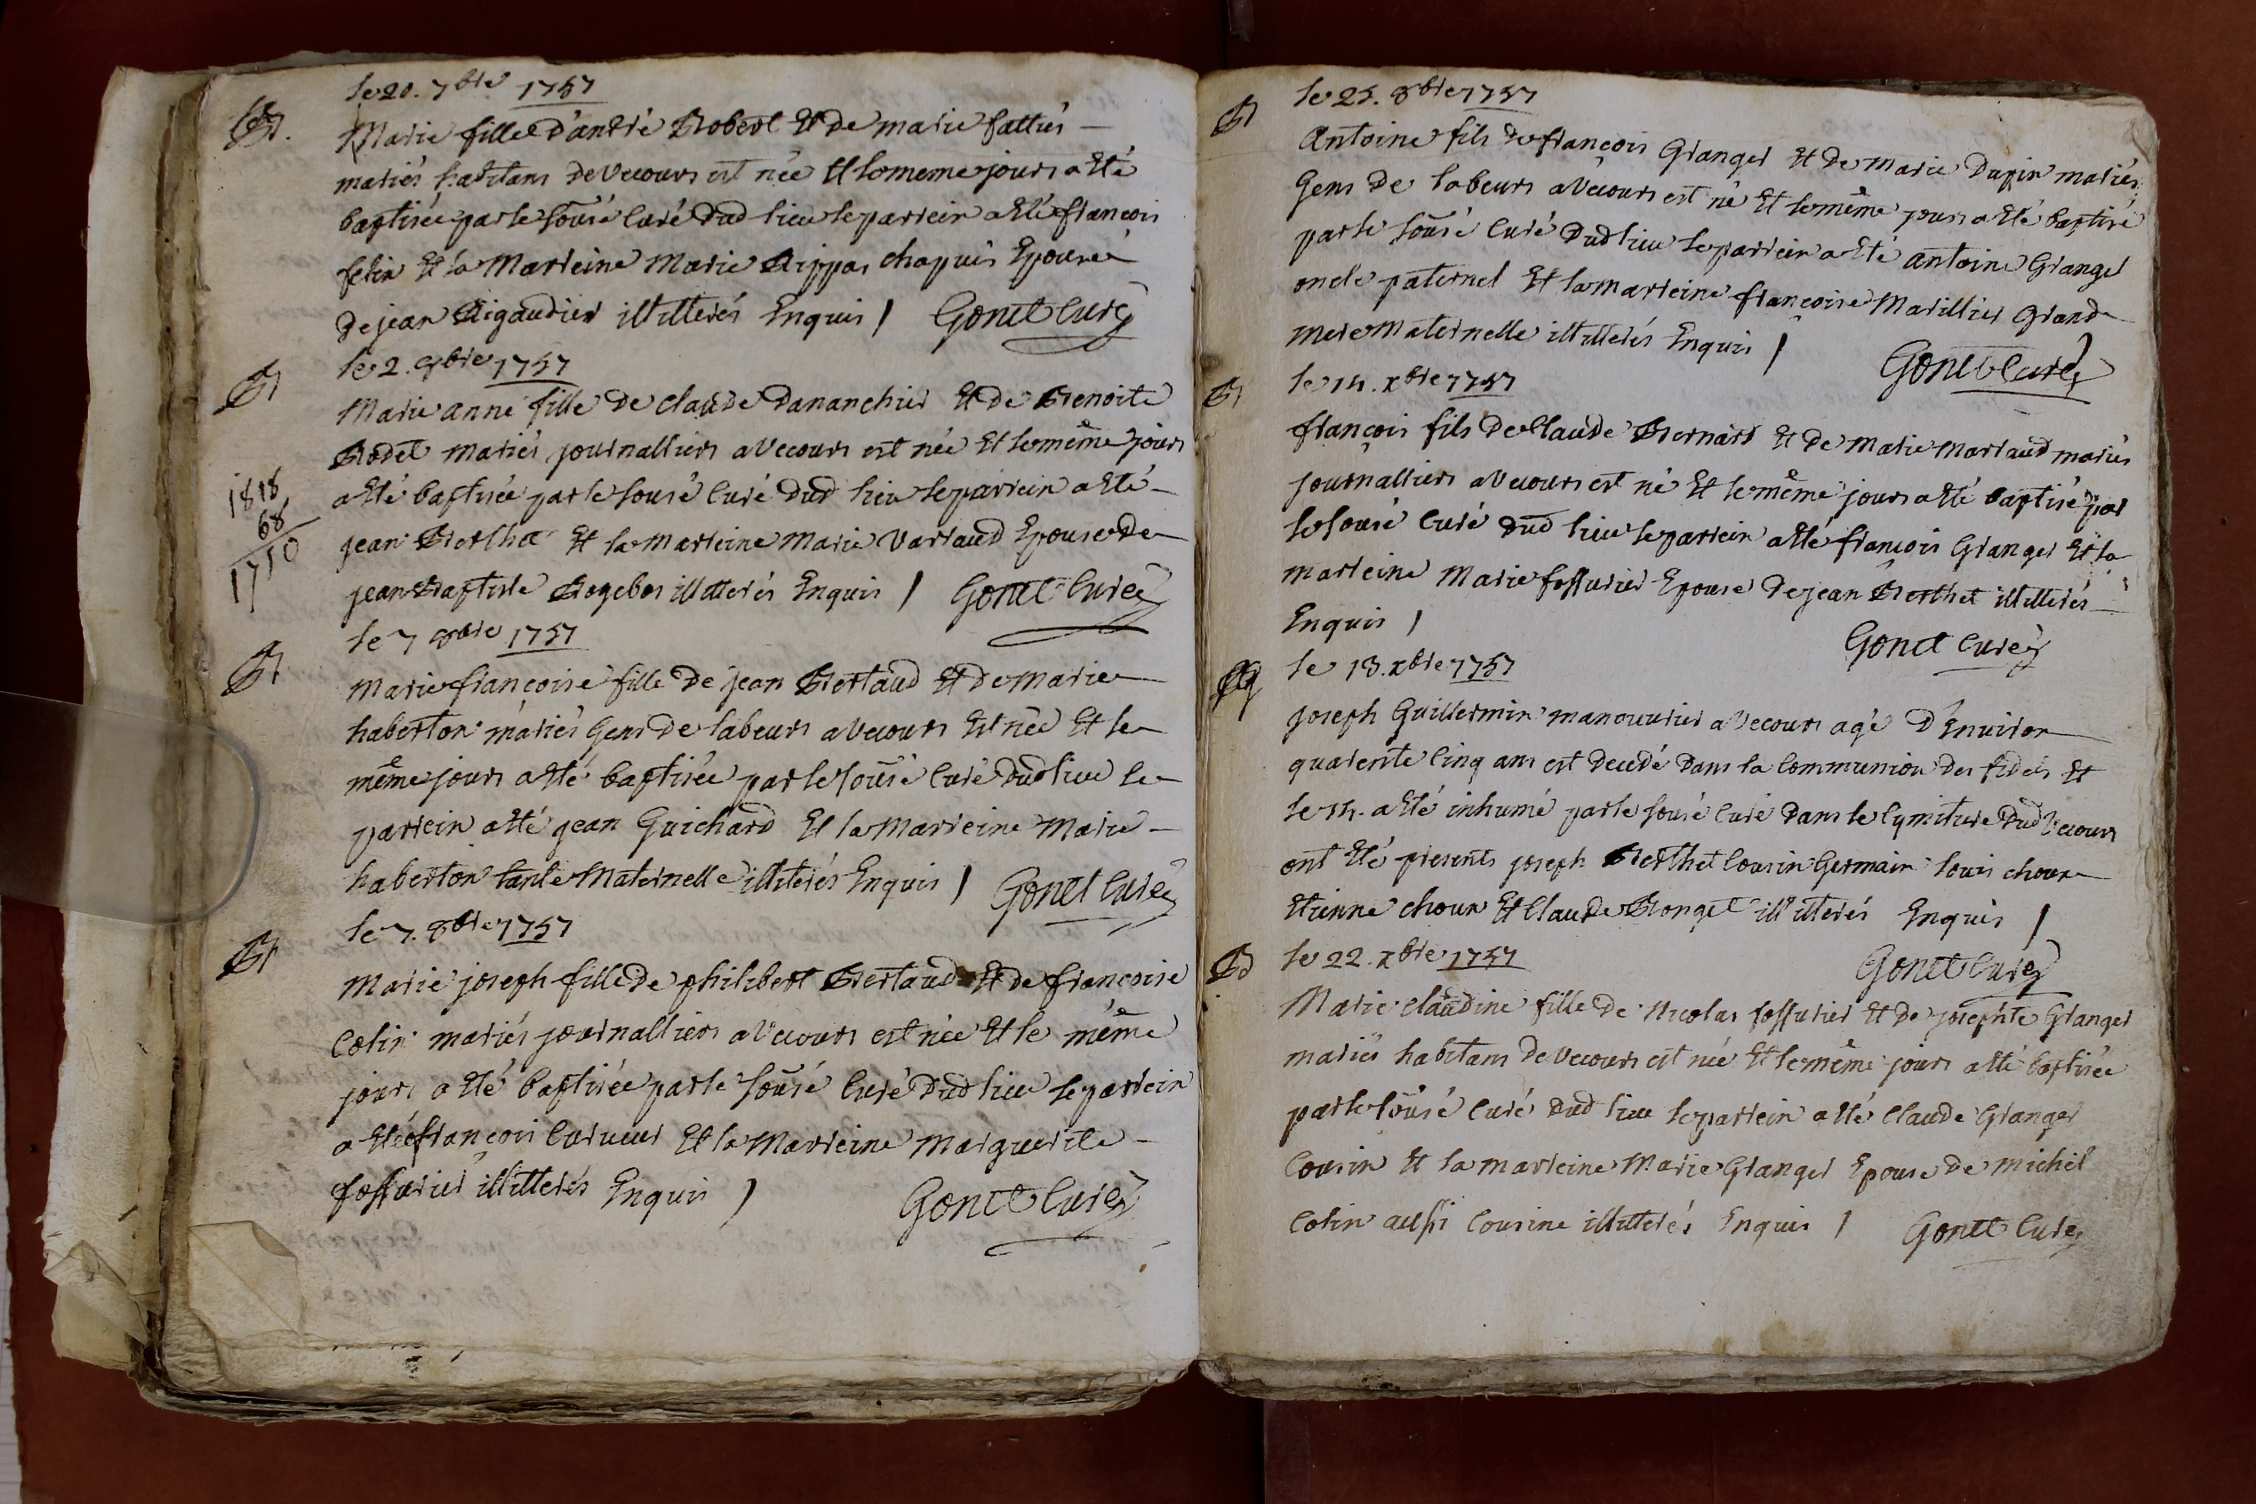 le 20. 7bre 1757
Bt.
Marie fille d'andré Robert Et de marie fattiés
mariés habitans de Vecours est née Et le meme jours a Eté
baptisée par le sousé Curé dud lieu le parrein a Eté françois
felin Et la Marreine Marie Rippas chapuis Epouse
de jean Rigaudier illitterés Enquis / Gonet Curé
le 2. 9bre 1757
Bt
Marie anne fille de claude dananchier Et de Benoite
Bodet mariés journalliers a Vecours est née Et le même jours
a Eté baptisée par le sousé Curé dud lieu le parrein a Eté
jean Berthet Et la Marreine Marie Variaud Epouse de
jean Baptiste Rogebos illitterés Enquis / Gonet Curé
1818
68
1710
le 7 8bre 1757
Bt
Marie françoise fille de jean Bertaud Et de Marie
haberton mariés Gens de labeurs a Vecours Est née Et le
même jours a Eté baptisée par le sousé Curé dud lieu le
parrein a Eté jean Guichard Et la Marreine Marie
haberton tante Maternelle illiterés Enquis / Gonet Curé
le 7. 8bre 1757
Bt
Marie joseph fille de philibert Bertaud Et de françoise
Colin mariés journalliers a Vecours est née Et le même
jours a Eté baptisée par le sousé Curé dud lieu le parrein
a Eté françois Et la Marreine Marguerite
fossurier illitterés Enquis / Gonet Curé
le 25. 8bre 1757
Bt
Antoine fils de françois Granger Et de Marie Dupin mariés
Gens de labeurs a Vecours est né Et le même jours a Eté baptisé
par le sousé Curé dud lieu le parrein a Eté antoine Granger
oncle paternel Et la marreine françoise Marillier Grand
Mere Maternelle illitterés Enquis / Gonet Curé
le 14. xbre 1757
Bt
françois fils de Claude Bernard Et de Marie Martaud mariés
journalliers a Vecours est né Et le même jours a Eté baptisé par
le sousé Curé dud lieu le parrein a Eté françois Granger Et la
marreine Marie fossurier Epouse de jean Berthet illitterés
Enquis / Gonet Curé
le 13. xbre 1757
joseph Guillermin manouurier a Vecours agé d'Enuiron
quarente Cinq ans est decedé dans la Communion des fidels Et
le 14. a Eté inhumé par le sousé Curé dans le Cymiture dud Vecours
ont Eté presents joseph Berthet Cousin Germain louis choux
Etienne choux Et Claude Ronget illitterés Enquis /
Gonet Curé
le 22. xbre 1757
Bt
Marie claudine fille de Nicolas fossurier Et de josephte Granger
mariés habitans de Vecours est née Et le même jours a Eté baptisée
par le sousé Curé dud lieu le parrein a Eté Claude Granger
Cousin Et la marreine Marie Granger Epouse de Michel
Colin aussi Cousine illitterés Enquis / Gonet Curé